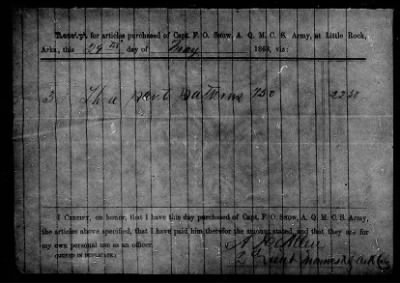 Receipt for articles purchased of Capt. F. O. Snow, A. Q. M. C. S. Army, at Little Rock,
Arks, this 29th day of May 1863, viz:
3 Pant Patterns 750 2250
I CERTIFY, on honor, that I have this day purchased of Capt. F. O. Snow, A. Q. M. C. S. Army,
the articles above specified, that I have paid him therefor the amount stated, and that they are for
my own personal use as an officer.
(SIGNED IN DUPLICATE.)
2d Lieut